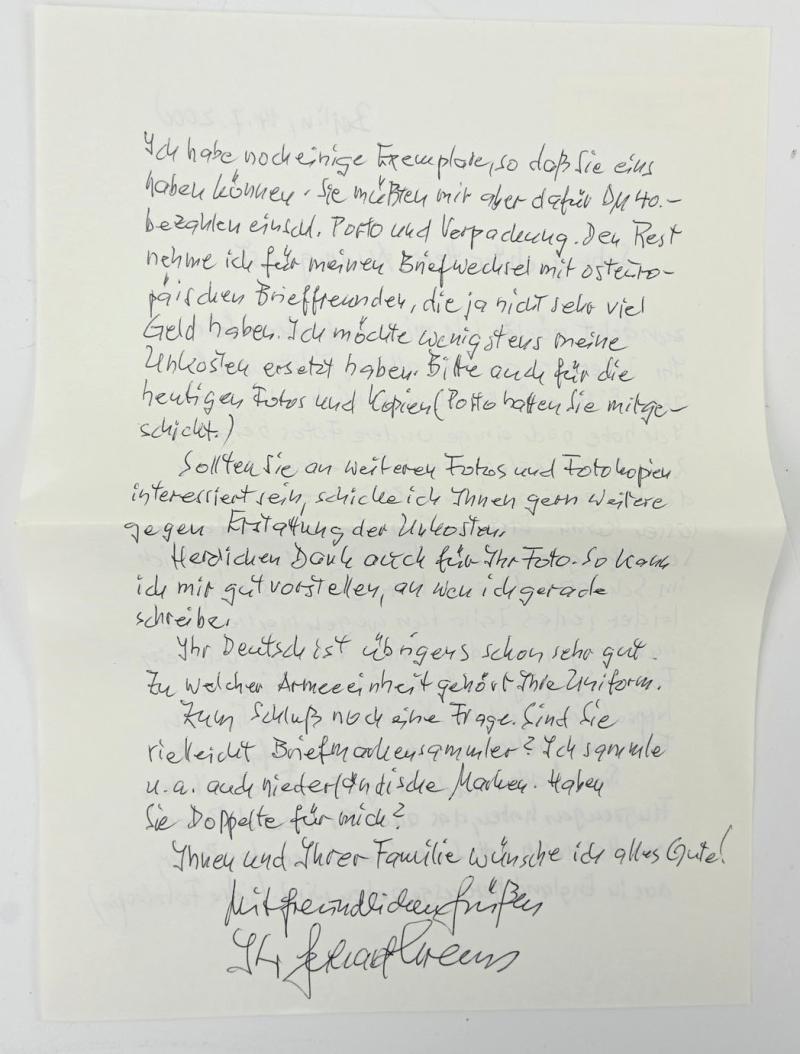 Ich habe noch einige Exemplare, so daß Sie eins
haben können. Sie müßten mir aber dafür DM 40.-
bezahlen einschl. Porto und Verpackung. Den Rest
nehme ich für meinen Briefwechsel mit osteuro-
päischen Brieffreunden, die ja nicht sehr viel
Geld haben. Ich möchte wenigstens meine
Unkosten ersetzt haben. Bitte auch für die
heutigen Fotos und Kopien (Porto hatten Sie mitge-
schickt.)
Sollten Sie an weiteren Fotos und Fotokopien
interessiert sein, schicke ich Ihnen gern weitere
gegen Erstattung der Unkosten.
Herzlichen Dank auch für Ihr Foto. So kann
ich mir gut vorstellen, an wen ich gerade
schreibe.
Ihr Deutsch ist übrigens schon sehr gut.
Zu welcher Armeeeinheit gehört Ihre Uniform.
Zum Schluß noch eine Frage. Sind Sie
vieleicht Briefmarkensammler? Ich sammle
u.a. auch niederländische Marken. Haben
Sie Doppelte für mich?
Ihnen und Ihrer Familie wünsche ich alles Gute!
Mit freundlichen Grüßen
Ihr